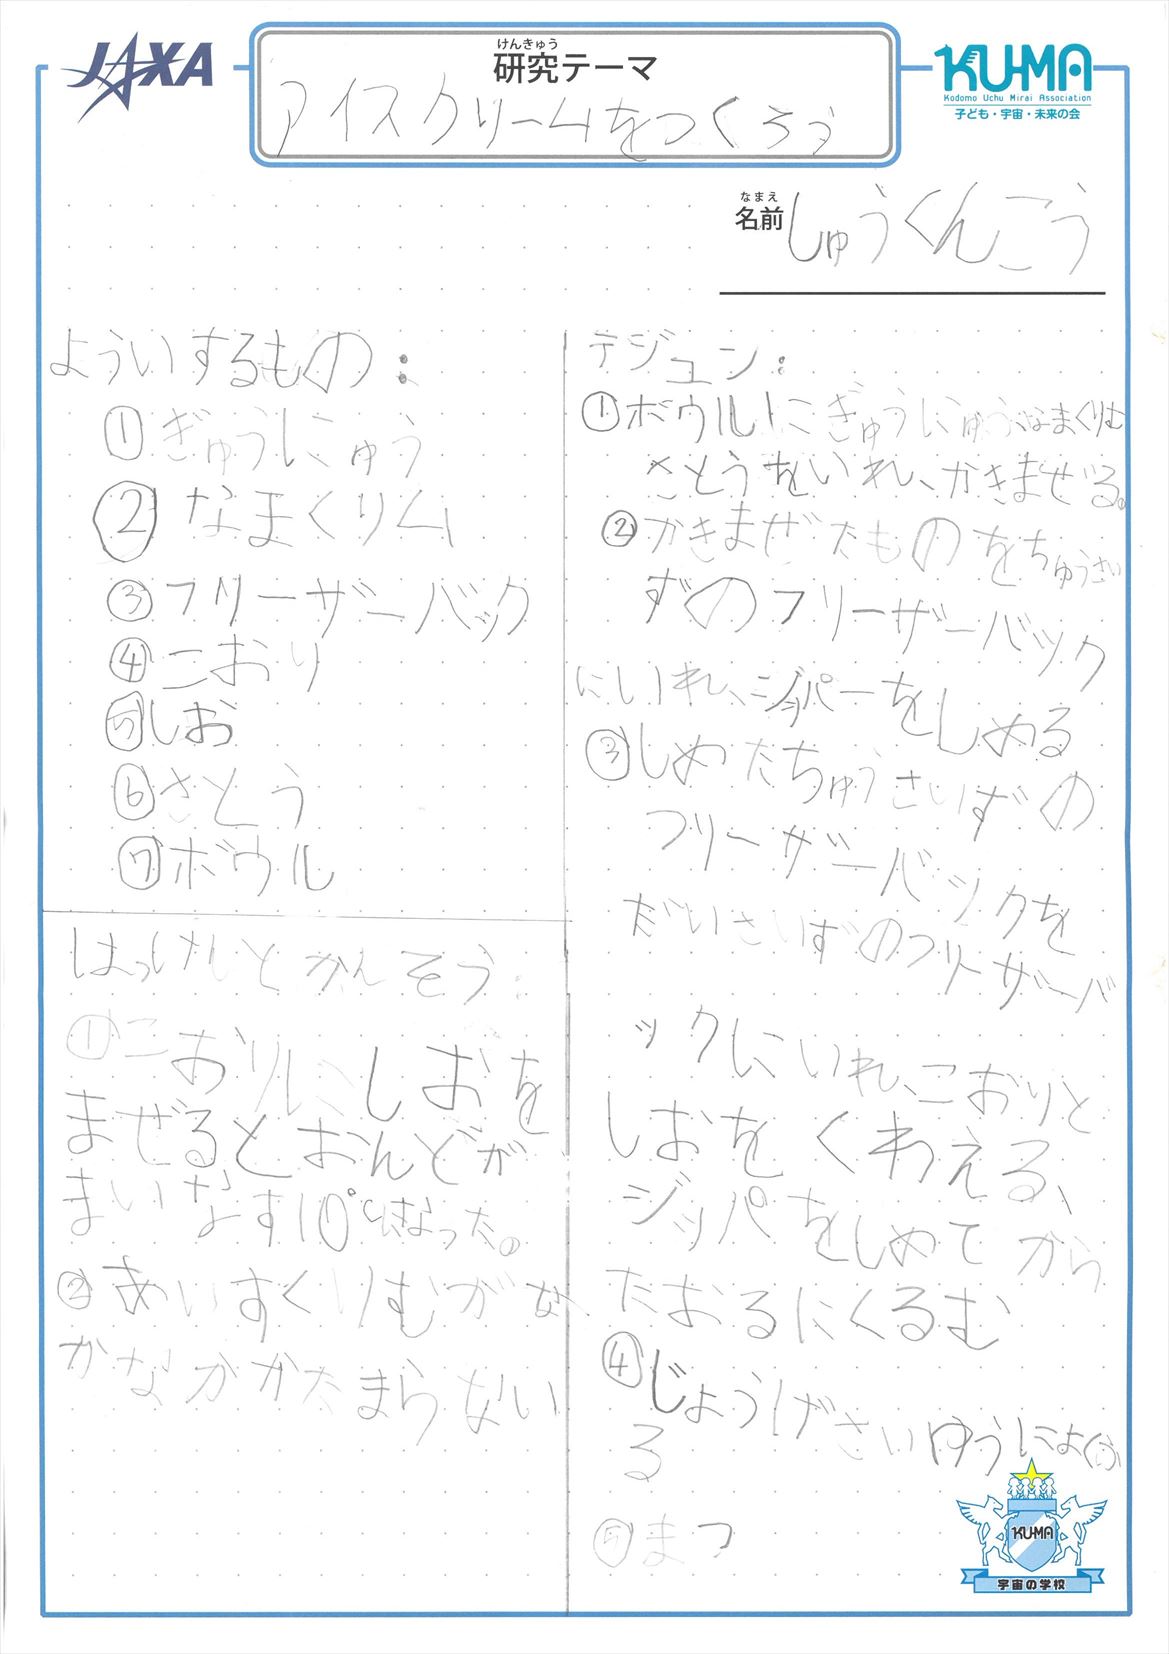 JAXA
けんきゅう
研究テーマ
アイスクリームをつくろう
KU-MA
Kodomo Uchu Mirai Association
子ども・宇宙・未来の会
なまえ
名前 しゅうくんこう
よういするもの:
①ぎゅうにゅう
②なまくりム
③フリーザーバック
④こおり
⑤しお
⑥さとう
⑦ボウル
はっけんとかんそう:
①こおりにしおを
まぜるとおんどが
まいなす10℃になった。
②あいすくりむがな
かなかかたまらない
テジュン:
①ボウルにぎゅうにゅう、なまくりむ
さとうをいれ、かきまぜる。
②かきまぜたものをちゅうさい
ずのフリーザーバック
にいれ、ジッパーをしめる
③しめたちゅうさいずの
フリーザーバックを
だいさいずのフリーザーバ
ックにいれ、こおりと
しおをくわえる、
ジッパをしめてから
たおるにくるむ
④じょうげさいゆうによくふ
る
⑤まつ
KU-MA
宇宙の学校